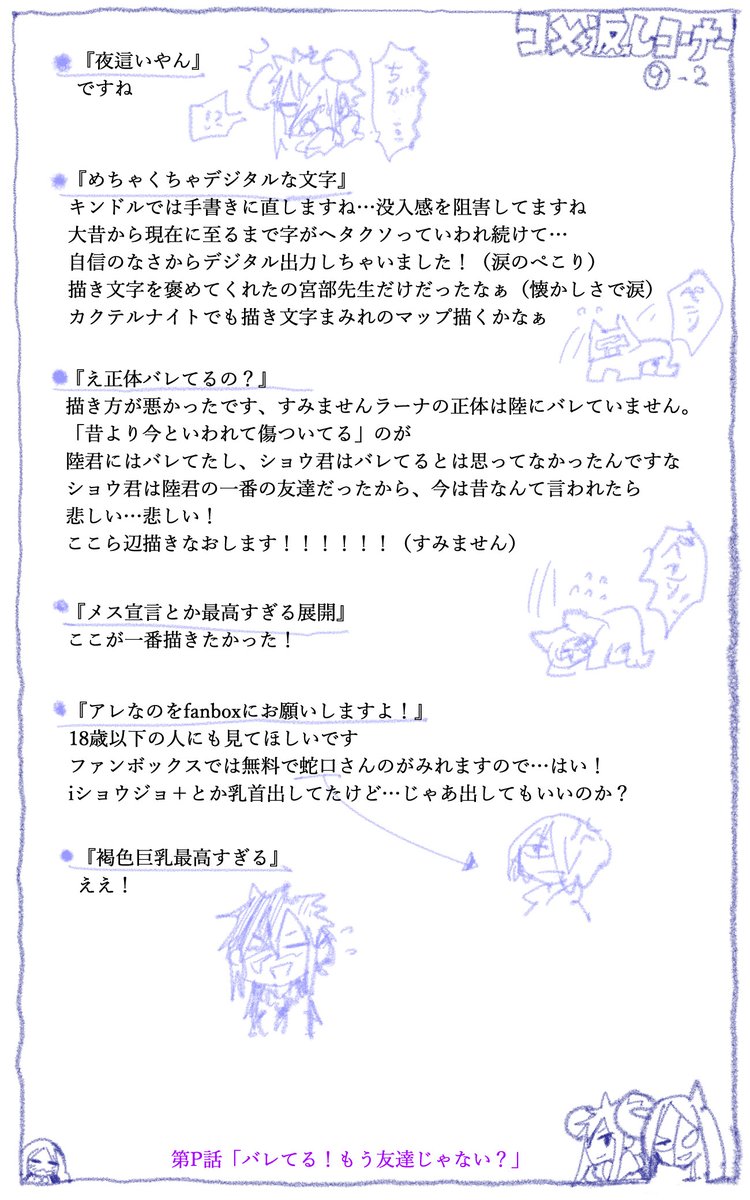 コメ返しコーナー
⑨-2
『夜這いやん』
ですね
ちが…
!?
『めちゃくちゃデジタルな文字』
キンドルでは手書きに直しますね…没入感を阻害してますね
大昔から現在に至るまで字がヘタクソっていわれ続けて…
自信のなさからデジタル出力しちゃいました！（涙のぺこり）
描き文字を褒めてくれたの宮部先生だけだったなぁ（懐かしさで涙）
カクテルナイトでも描き文字まみれのマップ描くかなぁ
ぺこり
『え正体バレてるの？』
描き方が悪かったです、すみませんラーナの正体は陸にバレていません。
「昔より今といわれて傷ついてる」のが
陸君にはバレてたし、ショウ君はバレてるとは思ってなかったんですな
ショウ君は陸君の一番の友達だったから、今は昔なんて言われたら
悲しい…悲しい！
ここら辺描きなおします！！！！！！（すみません）
『メス宣言とか最高すぎる展開』
ここが一番描きたかった！
『アレなのをfanboxにお願いしますよ！』
18歳以下の人にも見てほしいです
ファンボックスでは無料で蛇口さんのがみれますので…はい！
iショウジョ＋とか乳首出してたけど…じゃあ出してもいいのか？
『褐色巨乳最高すぎる』
ええ！
第P話「バレてる！もう友達じゃない？」